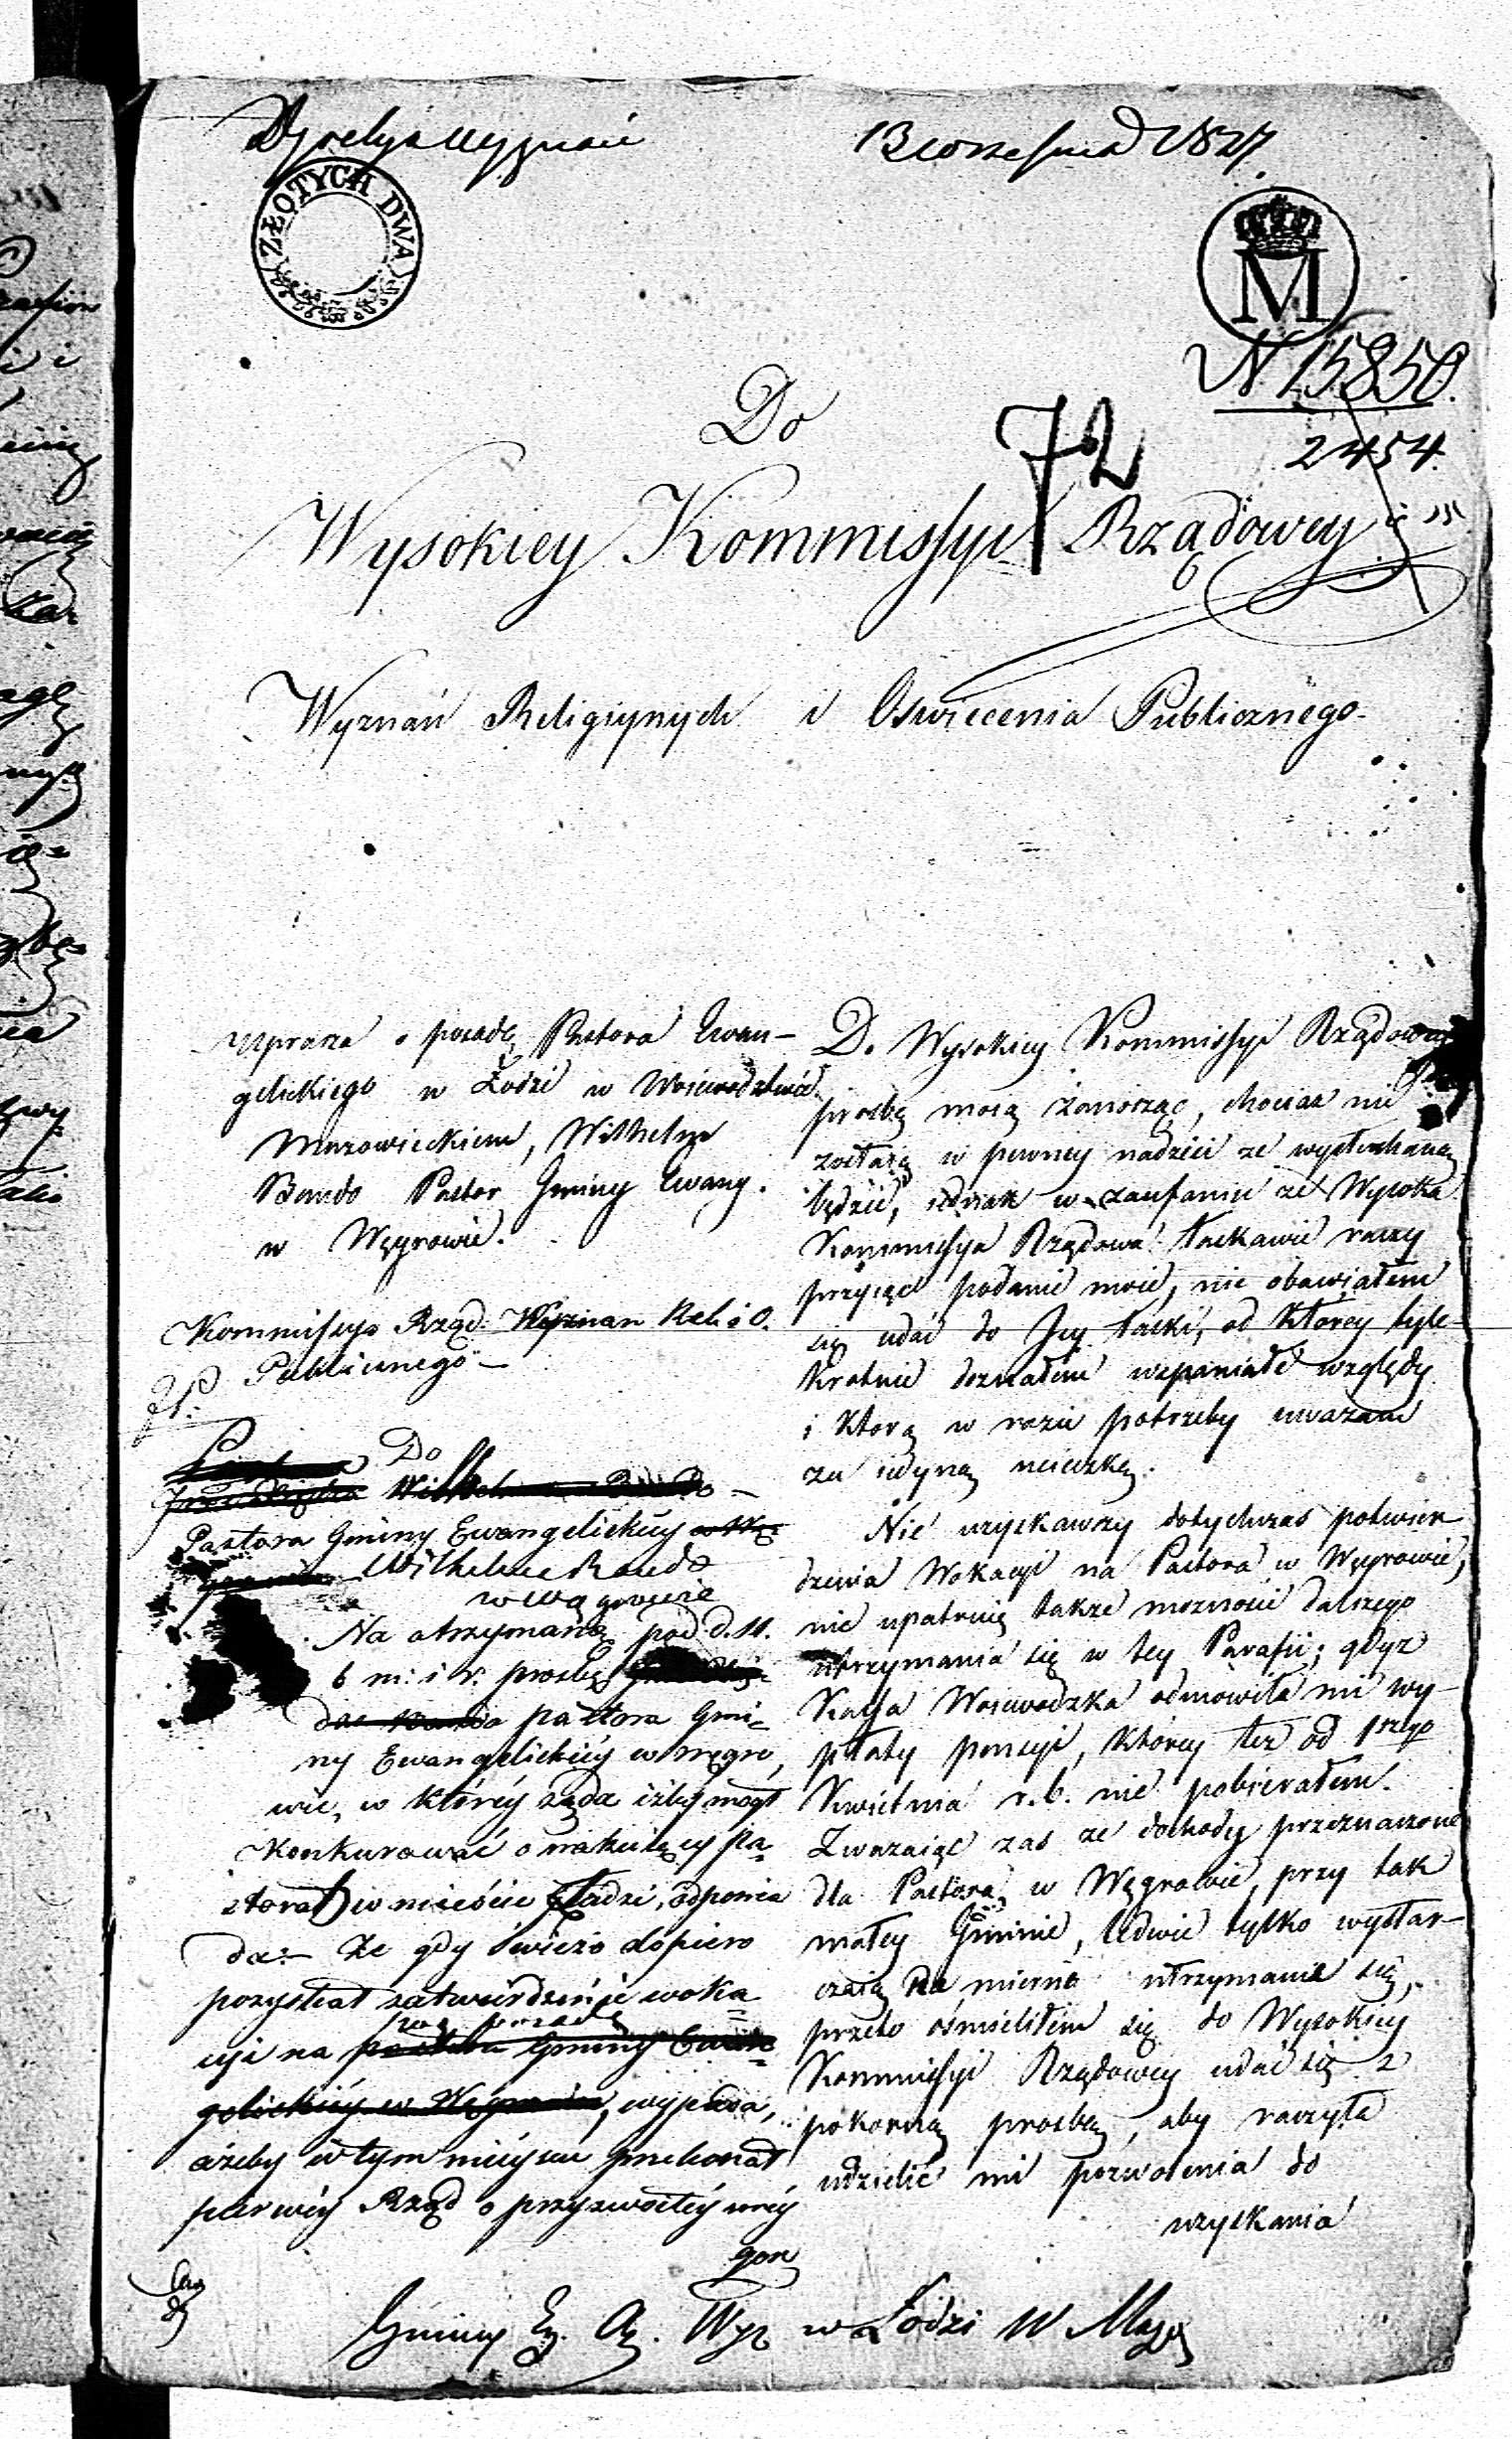 13 września 1827
ZŁOTYCH DWA
M
N 15850.
2454.
72
Do
Wysokiey Kommissyi Rządowey
Wyznań Religiynych i Oświecenia Publicznego.
Uprasza o posadę Pastora Ewan-
gelickiego w Łodzi w Woiewodztwie
Mazowieckiem, Wilhelm
Bando Pastor Gminy Ewang.
w Węgrowie.
Kommissya Rząd: Wyznan Rel: i O.
Publicznego
Do
Pastora Gminy Ewangelickiey
Wilhelma Bando
w Węgrowie
Na otrzymaną pod d. 11.
b m: i r. prosbę
pastora Gmi-
ny Ewangelickiey w Węgro
wie, w którey żąda iżby mogł
Konkurować o wakuiący Pa-
storat w mieście Łodzi, odpowia
da: Że gdy świeżo dopiero
pozyskał zatwierdzenie woka-
cyi na posadę
wypada,
ażeby w tym mieyscu przekonał
pierwey Rząd o przyzwoitey swey
gor
Do Wysokiey Kommissyi Rządowey
prosbę moią zanosząc, chociaż nie
zostaię w pewney nadziei że wysłuchaną
będzie, iednak w zaufaniu że Wysoka
Kommissya Rządowa łaskawie raczy
przyiąć podanie moie, nie obawiałem
się udać do Jey łaski, od Ktorey tyle-
krotnie doznałem wspaniałe względy
i Ktorą w razie potrzeby uważam
za iedyną ucieczkę.
Nie uzyskawszy dotychczas potwier-
dzenia Wokacyi na Pastora w Węgrowie,
nie upatruię także możności dalszego
utrzymania się w tey Parafii; gdyż
Kassa Woiewodzka odmowiła mi wy-
płaty pensyi, ktorey też od 1szego
Kwietnia r.b. nie pobierałem.
Zważaiąc zas że dochody przeznaczone
dla Pastora w Węgrowie, przy tak
małey Gminie, ledwie tylko wystar-
czaią na mierne utrzymanie się,
przeto ośmieliłem się do Wysokiey
Kommissyi Rządowey udać się z
pokorną prosbą, aby raczyła
udzielić mi pozwolenia do
uzyskania
Gminy Ew. Aug. Wyz w Łodzi W Maz